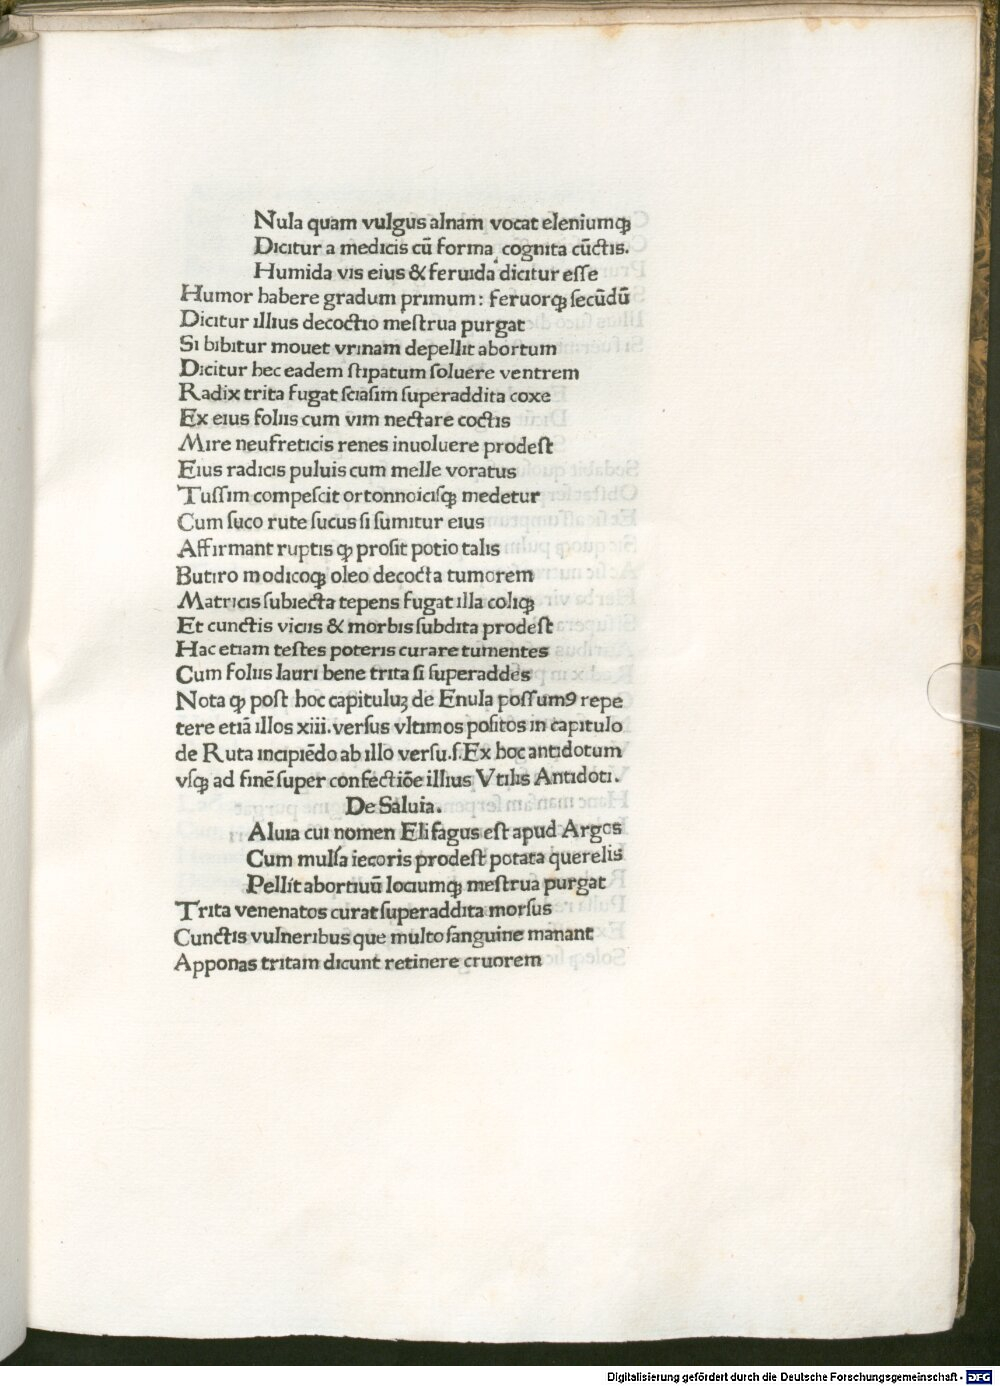 Nula quam vulgus alnam vocat eleniumqꝫ
Dicitur a medicis cū forma cognita cūctis.
Humida vis eius & feruida dicitur esse
Humor habere gradum primum: feruorqꝫ secūdū
Dicitur illius decoctio mestrua purgat
Si bibitur mouet vrinam depellit abortum
Dicitur hec eadem stipatum soluere ventrem
Radix trita fugat sciasim superaddita coxe
Ex eius foliis cum vim nectare coctis
Mire neufreticis renes inuoluere prodest
Eius radicis puluis cum melle voratus
Tussim compescit ortonnoicisqꝫ medetur
Cum suco rute sucus si sumitur eius
Affirmant ruptis ꝙ prosit potio talis
Butiro modicoqꝫ oleo decocta tumorem
Matricis subiecta tepens fugat illa coliqꝫ
Et cunctis viciis & morbis subdita prodest
Hac etiam testes poteris curare tumentes
Cum foliis lauri bene trita si superaddes
Nota ꝙ post hoc capituluꝫ de Enula possumꝰ repe
tere etiā illos xiii. versus vltimos positos in capitulo
de Ruta incipiēdo ab illo versu.s. Ex hoc antidotum
vsqꝫ ad finē super confectiōe illius Vtilis Antidoti.
De Saluia.
Aluia cui nomen Elifagus est apud Argos
Cum mulsa iecoris prodest potata querelis
Pellit abortiuū lociumqꝫ mestrua purgat
Trita venenatos curat superaddita morsus
Cunctis vulneribus que multo sanguine manant
Apponas tritam dicunt retinere cruorem
Digitalisierung gefördert durch die Deutsche Forschungsgemeinschaft - DFG